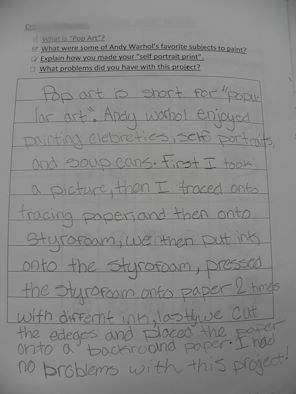 What is "Pop Art"?
What were some of Andy Warhol's favorite subjects to paint?
Explain how you made your "self portrait print".
What problems did you have with this project?
Pop art is short for "popu-
lar art". Andy warhol enjoyed
painting clebreties, self portraits,
and soup cans. First I took
a picture, then I traced onto
tracing paper, and then onto
Styrofoam, we then put ink
onto the styrofoam, pressed
the styrofoam onto paper 2 times
with differnt ink, lastly we cut
the edeges and placed the paper
onto a backround paper. I had
no problems with this project!